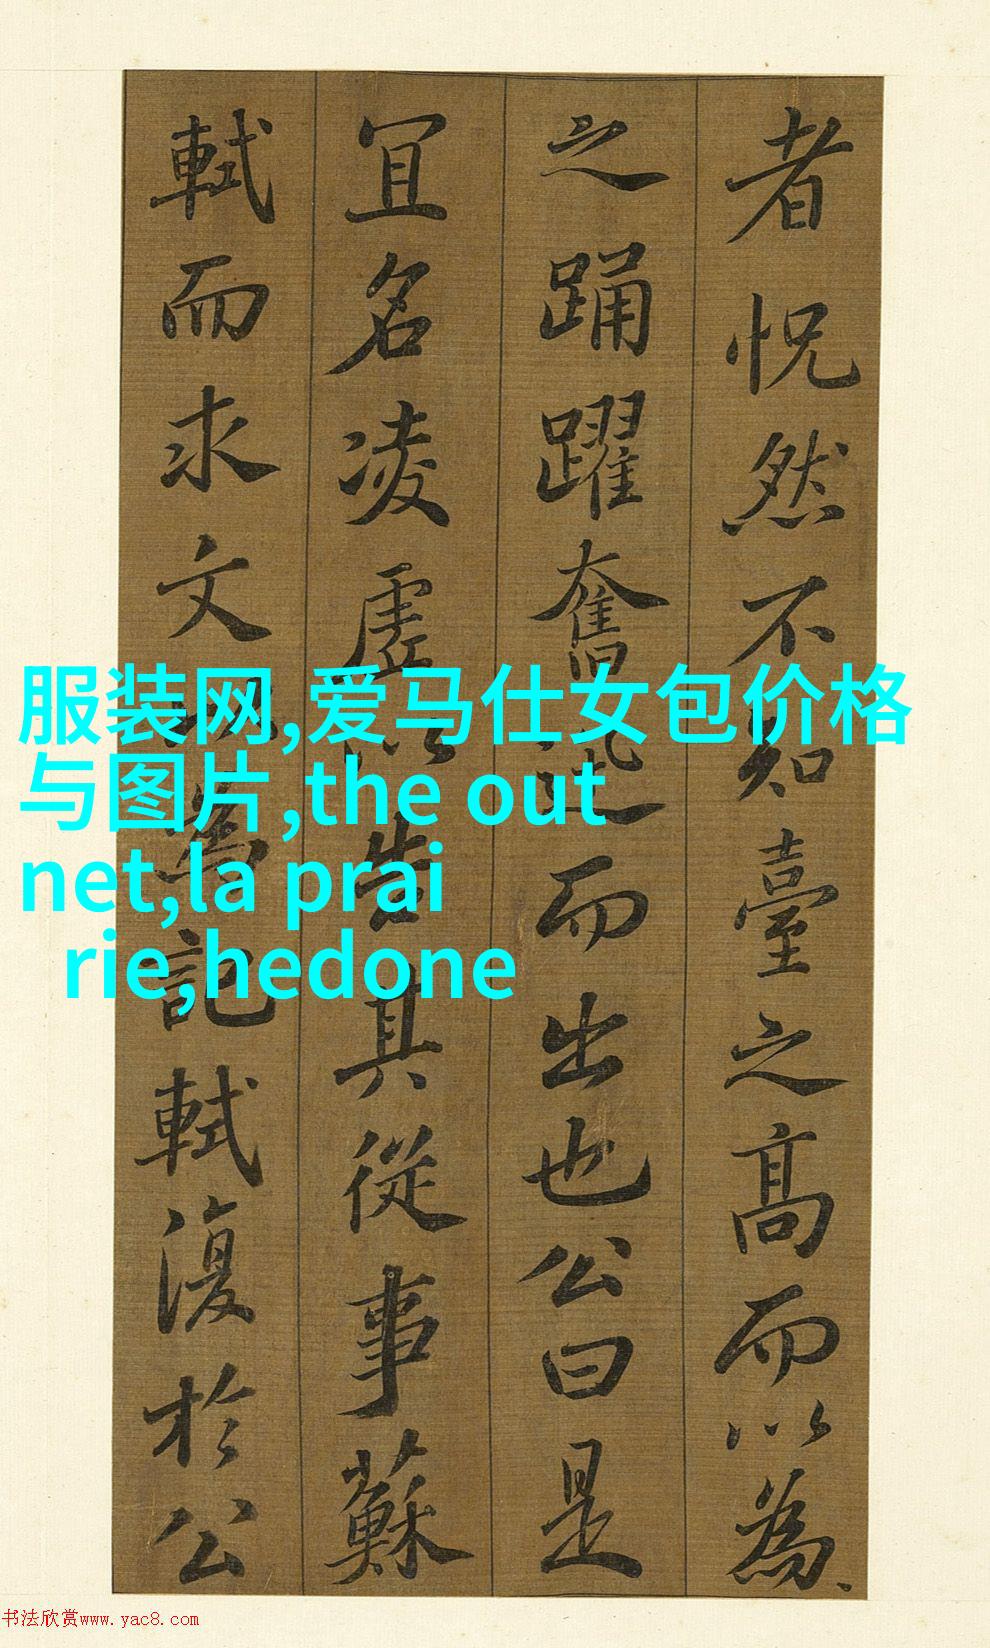 者怳然不知臺之髙而以為
之踊躍奮迅而出也公曰是
冝名凌虛以告其從事蘇
軾而求文以為記軾復於公
服装网,爱马仕女包价格
与图片,the out
net,la prai
rie,hedone
书法欣赏www.yac8.com